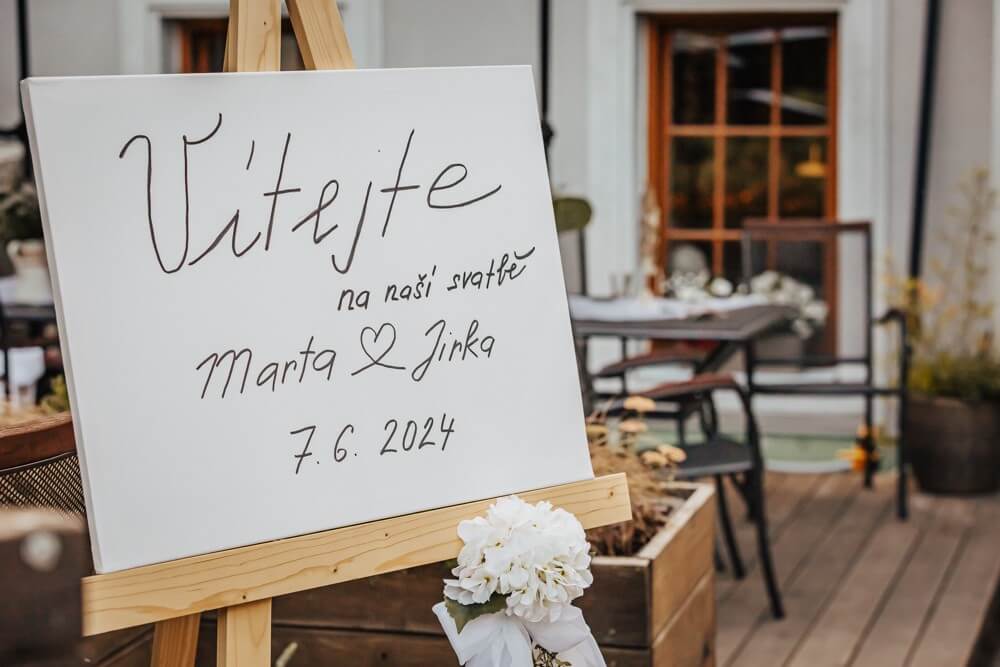 Vítejte
na naší svatbě
Marta ♡ Jirka
7. 6. 2024